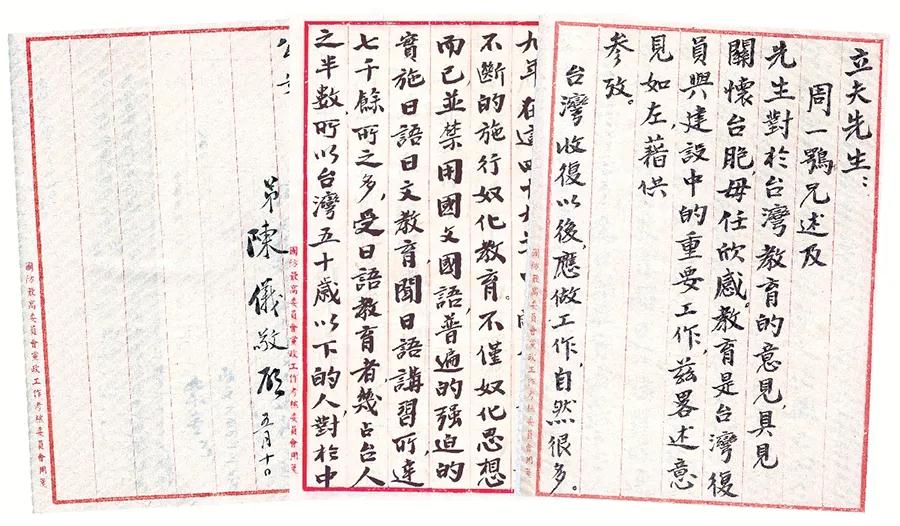 立夫先生：
周一鶚兄述及
先生對於台灣教育的意見,具見
關懷台胞,毋任欣感。教育是台灣復
員與建設中的重要工作,茲畧述意
見如左藉供
參攷。
台灣收復以後,應做工作,自然很多。
國防最高委員會黨政工作考核委員會用箋
九年在這四十
不斷的施行奴化教育。不僅奴化思想
而已,並禁用國文國語,普遍的強迫的
實施日語日文教育,聞日語講習所達
七千餘所之多,受日語教育者幾占台人
之半數,所以台灣五十歲以下的人,對於中
國防最高委員會黨政工作考核委員會用箋
弟陳儀敬啟 五月十日
國防最高委員會黨政工作考核委員會用箋